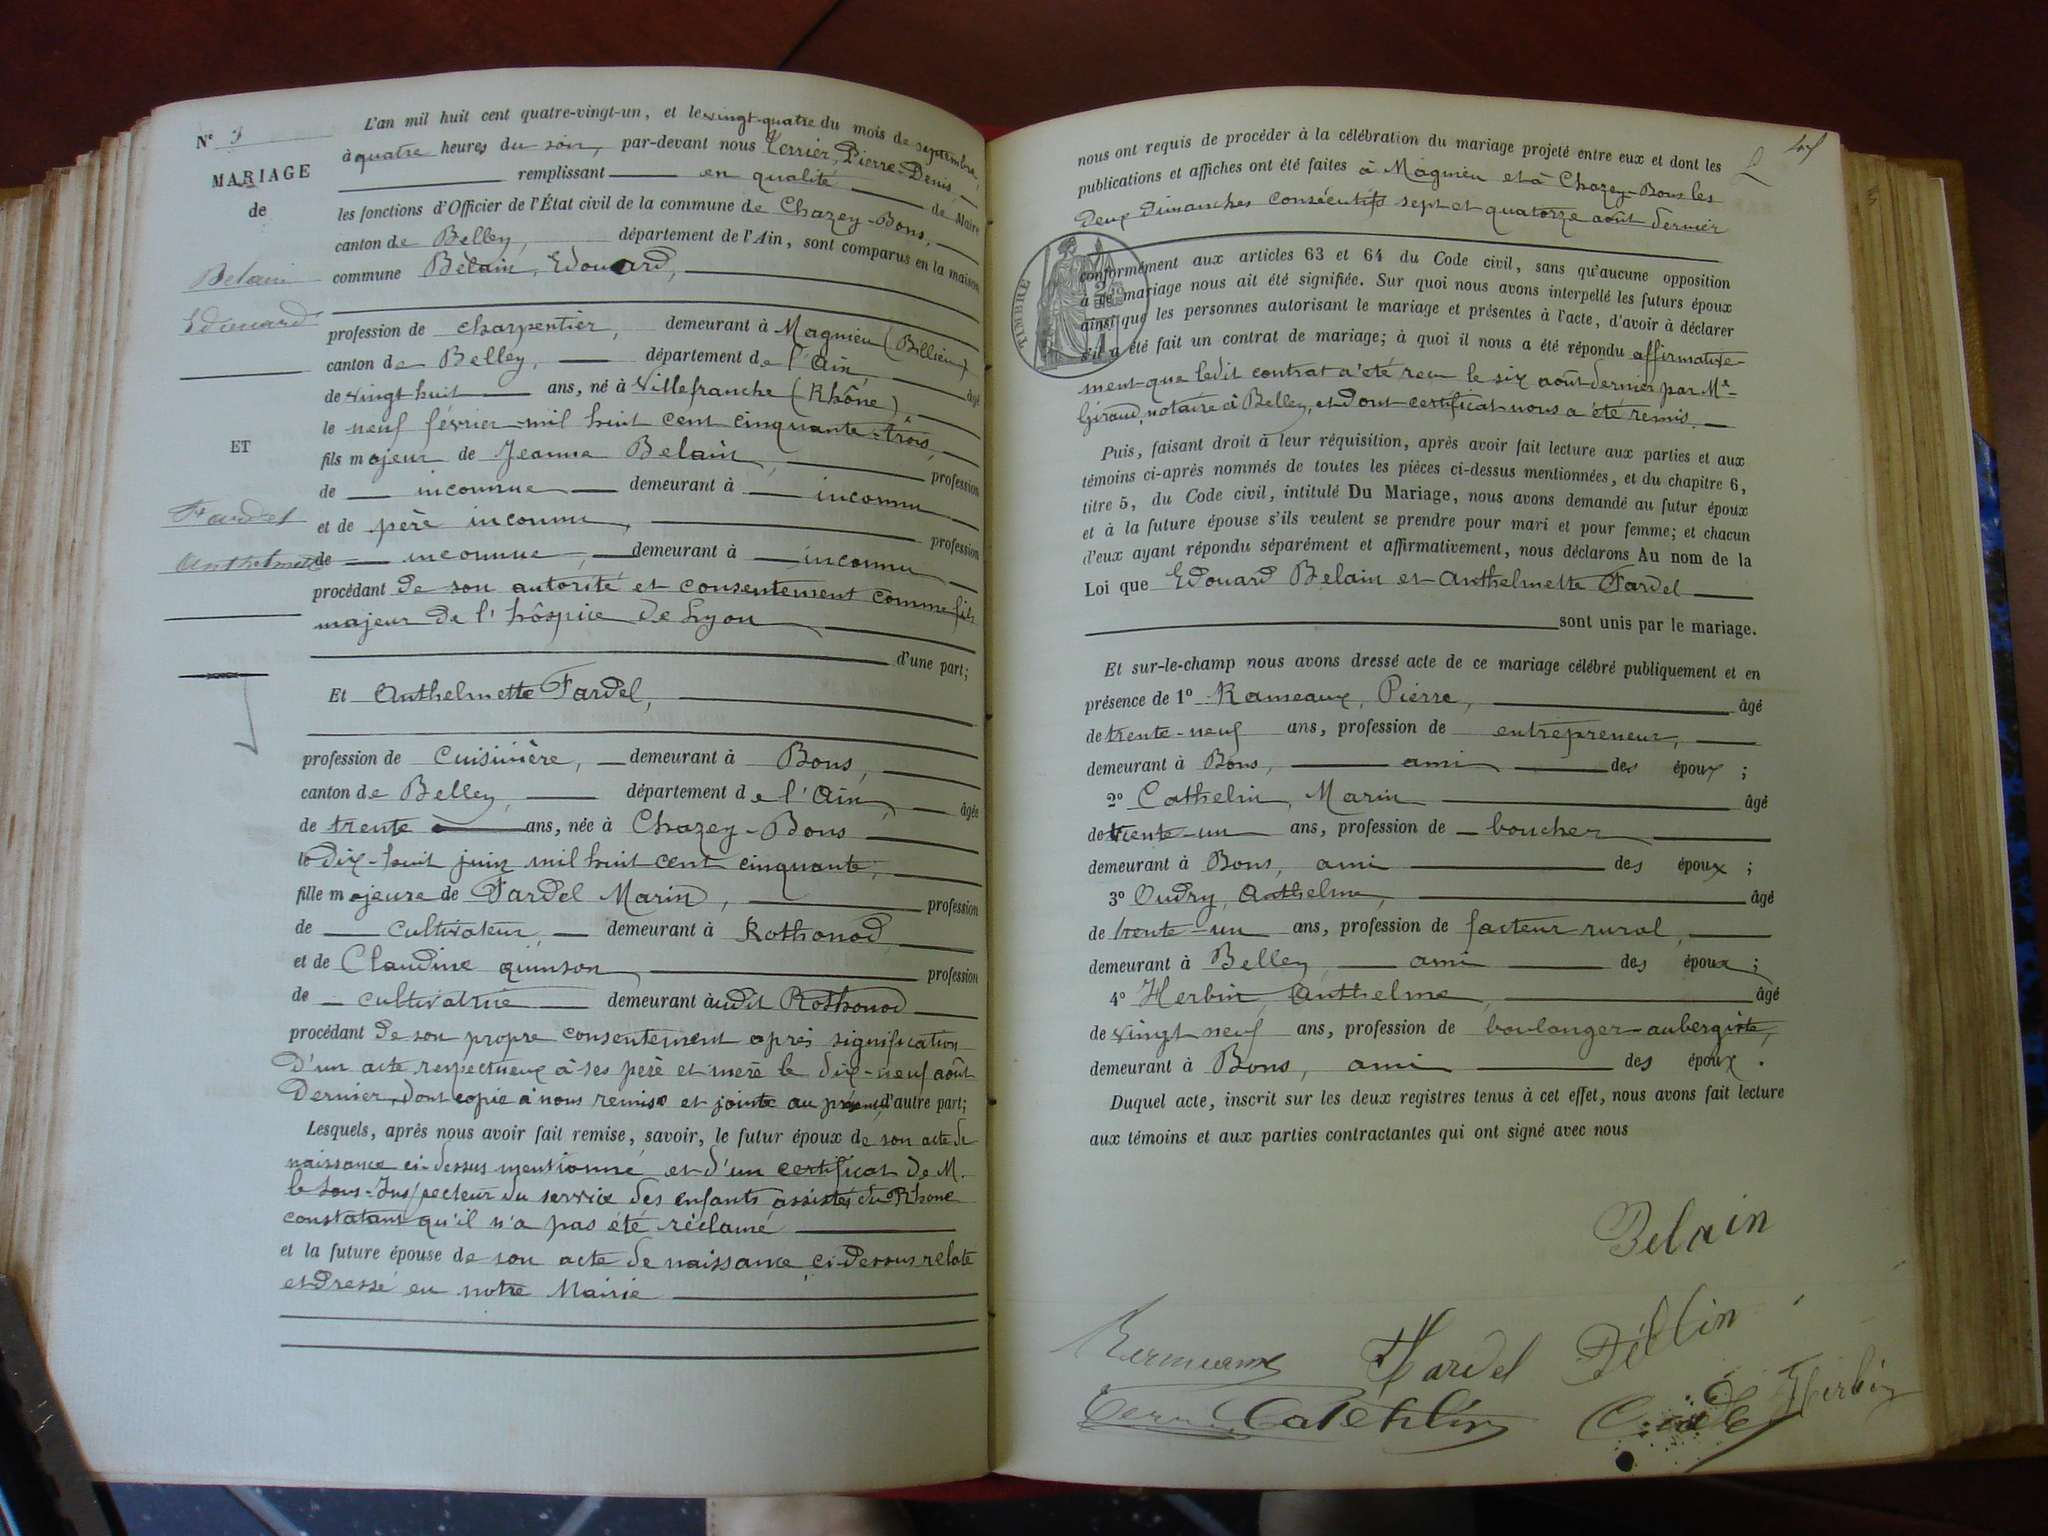 N° 3
MARIAGE
de
Belain
Edouard
ET
Fardel
Anthelmette
L'an mil huit cent quatre-vingt-un, et le vingt-quatre du mois de septembre,
à quatre heures du soir, par-devant nous Terrier, Pierre-Denis,
remplissant en qualité de Maire
les fonctions d'Officier de l'État civil de la commune de Chazey-Bons,
canton de Belley, département de l'Ain, sont comparus en la maison
commune Belain, Edouard,
profession de charpentier, demeurant à Magnieu (Billieu)
canton de Belley, département de l'Ain, âgé
de vingt huit ans, né à Villefranche (Rhône),
le neuf février mil huit cent cinquante-trois,
fils majeur de Jeanne Belain, profession
de inconnue demeurant à inconnu
et de père inconnu, profession
de inconnue, demeurant à inconnu
procédant de son autorité et consentement comme fils
majeur de l'hôspice de Lyon
d'une part;
Et Anthelmette Fardel,
profession de Cuisinière, demeurant à Bons,
canton de Belley, département de l'Ain, âgée
de trente ans, née à Chazey-Bons
le dix-huit juin mil huit cent cinquante,
fille majeure de Fardel Marin, profession
de cultivateur, demeurant à Rothonod
et de Claudine quinson profession
de cultivatrice demeurant àudit Rothonod
procédant de son propre consentement après signification
d'un acte respectueux à ses père et mère le dix-neuf août
dernier, dont copie à nous remise et jointe au présent, d'autre part;
Lesquels, après nous avoir fait remise, savoir, le futur époux de son acte de
naissance ci-dessus mentionné et d'un certificat de M.
le Sous-Inspecteur du service des enfants assistés du Rhône
constatant qu'il n'a pas été réclamé
et la future épouse de son acte de naissance ci-dessus relaté
et dressé en notre Mairie
nous ont requis de procéder à la célébration du mariage projeté entre eux et dont les
publications et affiches ont été faites à Magnieu et à Chazey-Bons les
deux dimanches consécutifs sept et quatorze août dernier
TIMBRE
conformément aux articles 63 et 64 du Code civil, sans qu'aucune opposition
à ce mariage nous ait été signifiée. Sur quoi nous avons interpellé les futurs époux
ainsi que les personnes autorisant le mariage et présentes à l'acte, d'avoir à déclarer
s'il a été fait un contrat de mariage; à quoi il nous a été répondu affirmative-
ment que ledit contrat a été reçu le six août dernier par Me
Giraud, notaire à Belley, et dont certificat nous a été remis.
Puis, faisant droit à leur réquisition, après avoir fait lecture aux parties et aux
témoins ci-après nommés de toutes les pièces ci-dessus mentionnées, et du chapitre 6,
titre 5, du Code civil, intitulé Du Mariage, nous avons demandé au futur époux
et à la future épouse s'ils veulent se prendre pour mari et pour femme; et chacun
d'eux ayant répondu séparément et affirmativement, nous déclarons Au nom de la
Loi que Edouard Belain et Anthelmette Fardel
sont unis par le mariage.
Et sur-le-champ nous avons dressé acte de ce mariage célébré publiquement et en
présence de 1° Rameaux, Pierre, âgé
de trente-neuf ans, profession de entrepreneur,
demeurant à Bons, ami des époux;
2° Cathelin, Marin âgé
de trente-un ans, profession de boucher
demeurant à Bons, ami des époux;
3° Oudry, Anthelme, âgé
de trente-un ans, profession de facteur rural,
demeurant à Belley, ami des époux;
4° Herbin, Anthelme, âgé
de vingt neuf ans, profession de boulanger-aubergiste,
demeurant à Bons, ami des époux.
Duquel acte, inscrit sur les deux registres tenus à cet effet, nous avons fait lecture
aux témoins et aux parties contractantes qui ont signé avec nous
Belain
Fardel
Catehlin
Herbin